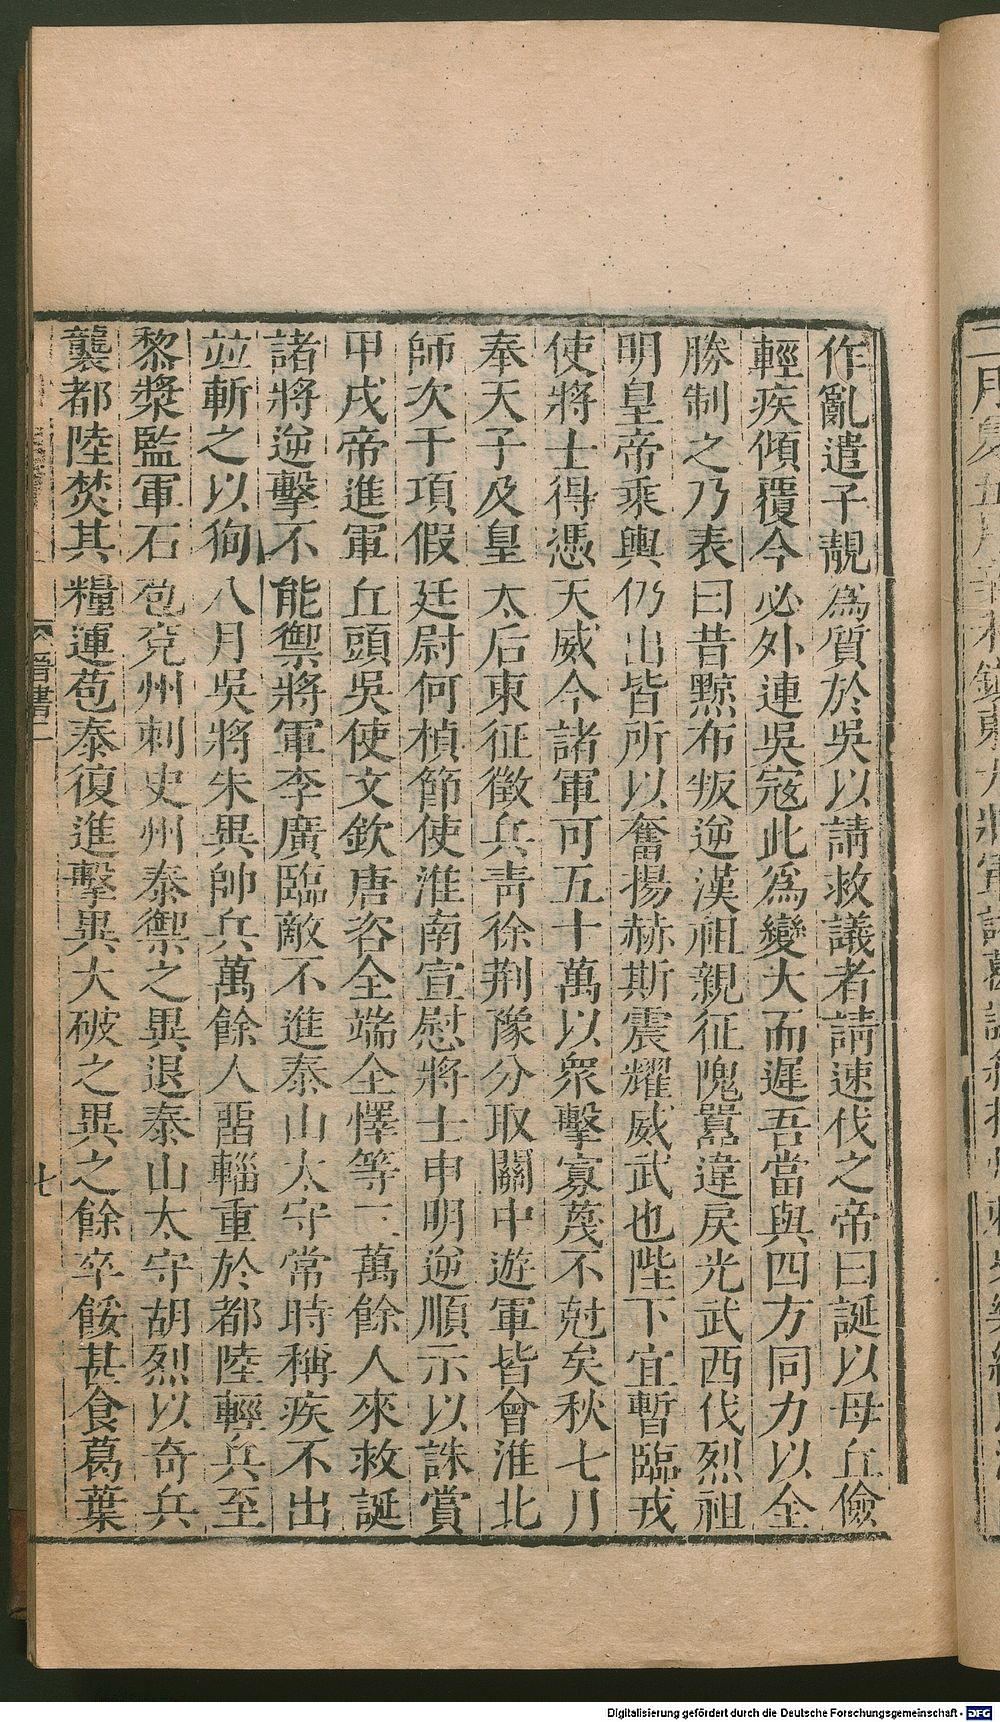 作亂遣子靚爲質於吳以請救議者請速伐之帝曰誕以母丘儉
輕疾傾覆今必外連吳寇此爲變大而遲吾當與四方同力以全
勝制之乃表曰昔黥布叛逆漢祖親征隗囂違戾光武西伐烈祖
明皇帝乘輿仍出皆所以奮揚赫斯震耀威武也陛下宜暫臨戎
使將士得憑天威今諸軍可五十萬以衆擊寡蔑不尅矣秋七月
奉天子及皇太后東征徵兵靑徐荆豫分取關中遊軍皆會淮北
師次于項假廷尉何楨節使淮南宣慰將士申明逆順示以誅賞
甲戌帝進軍丘頭吳使文欽唐咨全端全懌等三萬餘人來救誕
諸將逆擊不能禦將軍李廣臨敵不進泰山太守常時稱疾不出
並斬之以狥八月吳將朱異帥兵萬餘人畱輜重於都陸輕兵至
黎漿監軍石苞兗州刺史州泰禦之異退泰山太守胡烈以奇兵
襲都陸焚其糧運苞泰復進擊異大破之異之餘卒餒甚食葛葉
晉書二
七
Digitalisierung gefördert durch die Deutsche Forschungsgemeinschaft - DFG